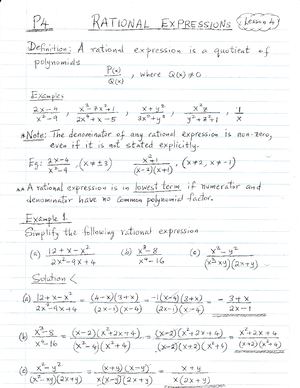 P4 RATIONAL EXPRESSIONS (Lesson 4)
Definition: A rational expression is a quotient of
polynomials
P(x)/Q(x) , where Q(x) ≠ 0
Examples
(2x-4)/(x²-9) , (x³-7x²+1)/(2x²+x-5) , (x+y²)/(3x²+y²) , /(y²+z²+1) , 1/x
*Note: The denominator of any rational expression is non-zero,
even if it is not stated explicitly.
Eg: (2x-4)/(x²-9) , (x ≠ ±3) (x²+1)/((x-2)(x+1)) , (x≠2, x≠-1)
** A rational expression is in lowest term if numerator and
denominator have no common polynomial factor.
Example 1
Simplify the following rational expression
(a) (12+x-x²)/(2x²-9x+4) (b) (x³-8)/(x⁴-16) (c) (x²-y²)/((x²-xy)(2x+y))
Solution
(a) (12+x-x²)/(2x²-9x+4) = (4-x)(3+x)/((2x-1)(x-4)) = -1(x-4)(3+x)/((2x-1)(x-4)) = - (3+x)/(2x-1)
(b) (x³-8)/(x⁴-16) = (x-2)(x²+2x+4)/((x²-4)(x²+4)) = (x-2)(x²+2x+4)/((x-2)(x+2)(x²+4)) = (x²+2x+4)/((x+2)(x²+4))
(c) (x²-y²)/((x²-xy)(2x+y)) = (x+y)(x-y)/(x(x-y)(2x+y)) = (x+y)/(x(2x+y))